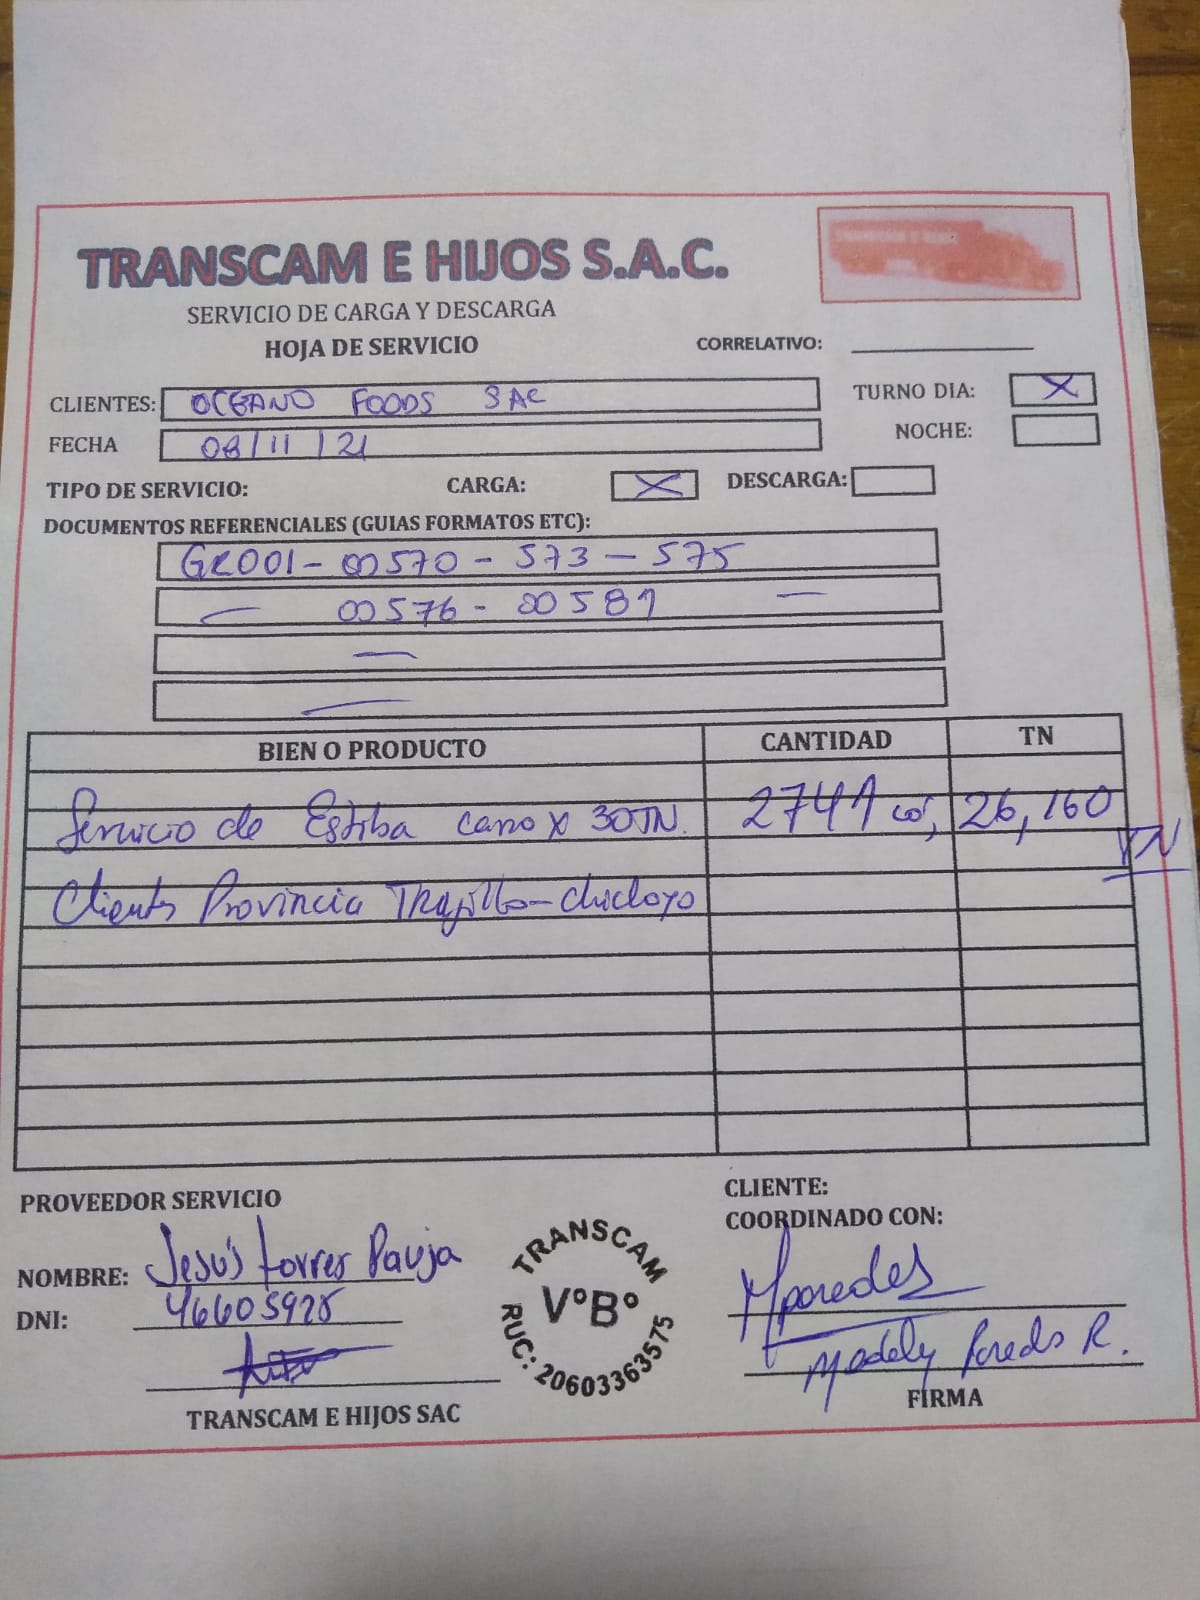 TRANSCAM E HIJOS S.A.C.
SERVICIO DE CARGA Y DESCARGA
HOJA DE SERVICIO
CORRELATIVO:
CLIENTES: OCEANO FOODS SAC
TURNO DIA: X
FECHA 08/11/21
NOCHE:
TIPO DE SERVICIO: CARGA: X DESCARGA:
DOCUMENTOS REFERENCIALES (GUIAS FORMATOS ETC):
GR001-00570-573-575
— 00576-00581 —
—
—
BIEN O PRODUCTO CANTIDAD TN
Servicio de Estiba carro x 30TN. 2741 26,160 TN
Clients Provincia Trujillo-chiclayo
PROVEEDOR SERVICIO
CLIENTE:
COORDINADO CON:
NOMBRE: Jesús torres Pauja
DNI: 46605928
TRANSCAM
V°B°
RUC: 20603363575
Mparedes
Madely Paredes R.
TRANSCAM E HIJOS SAC
FIRMA